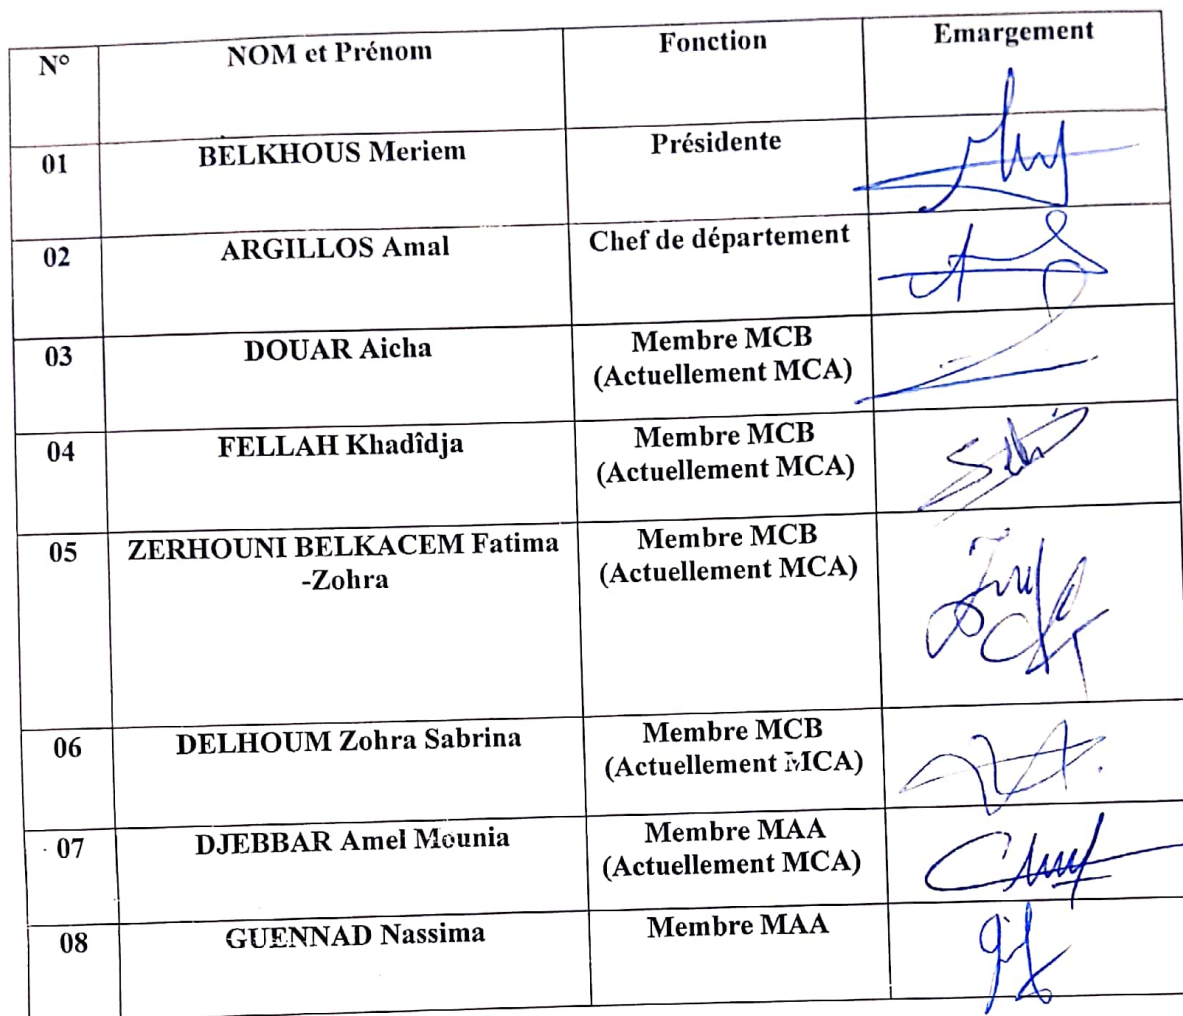 N° NOM et Prénom Fonction Emargement
01 BELKHOUS Meriem Présidente
02 ARGILLOS Amal Chef de département
03 DOUAR Aicha Membre MCB
(Actuellement MCA)
04 FELLAH Khadîdja Membre MCB
(Actuellement MCA)
05 ZERHOUNI BELKACEM Fatima Membre MCB
-Zohra (Actuellement MCA)
06 DELHOUM Zohra Sabrina Membre MCB
(Actuellement MCA)
07 DJEBBAR Amel Mounia Membre MAA
(Actuellement MCA)
08 GUENNAD Nassima Membre MAA